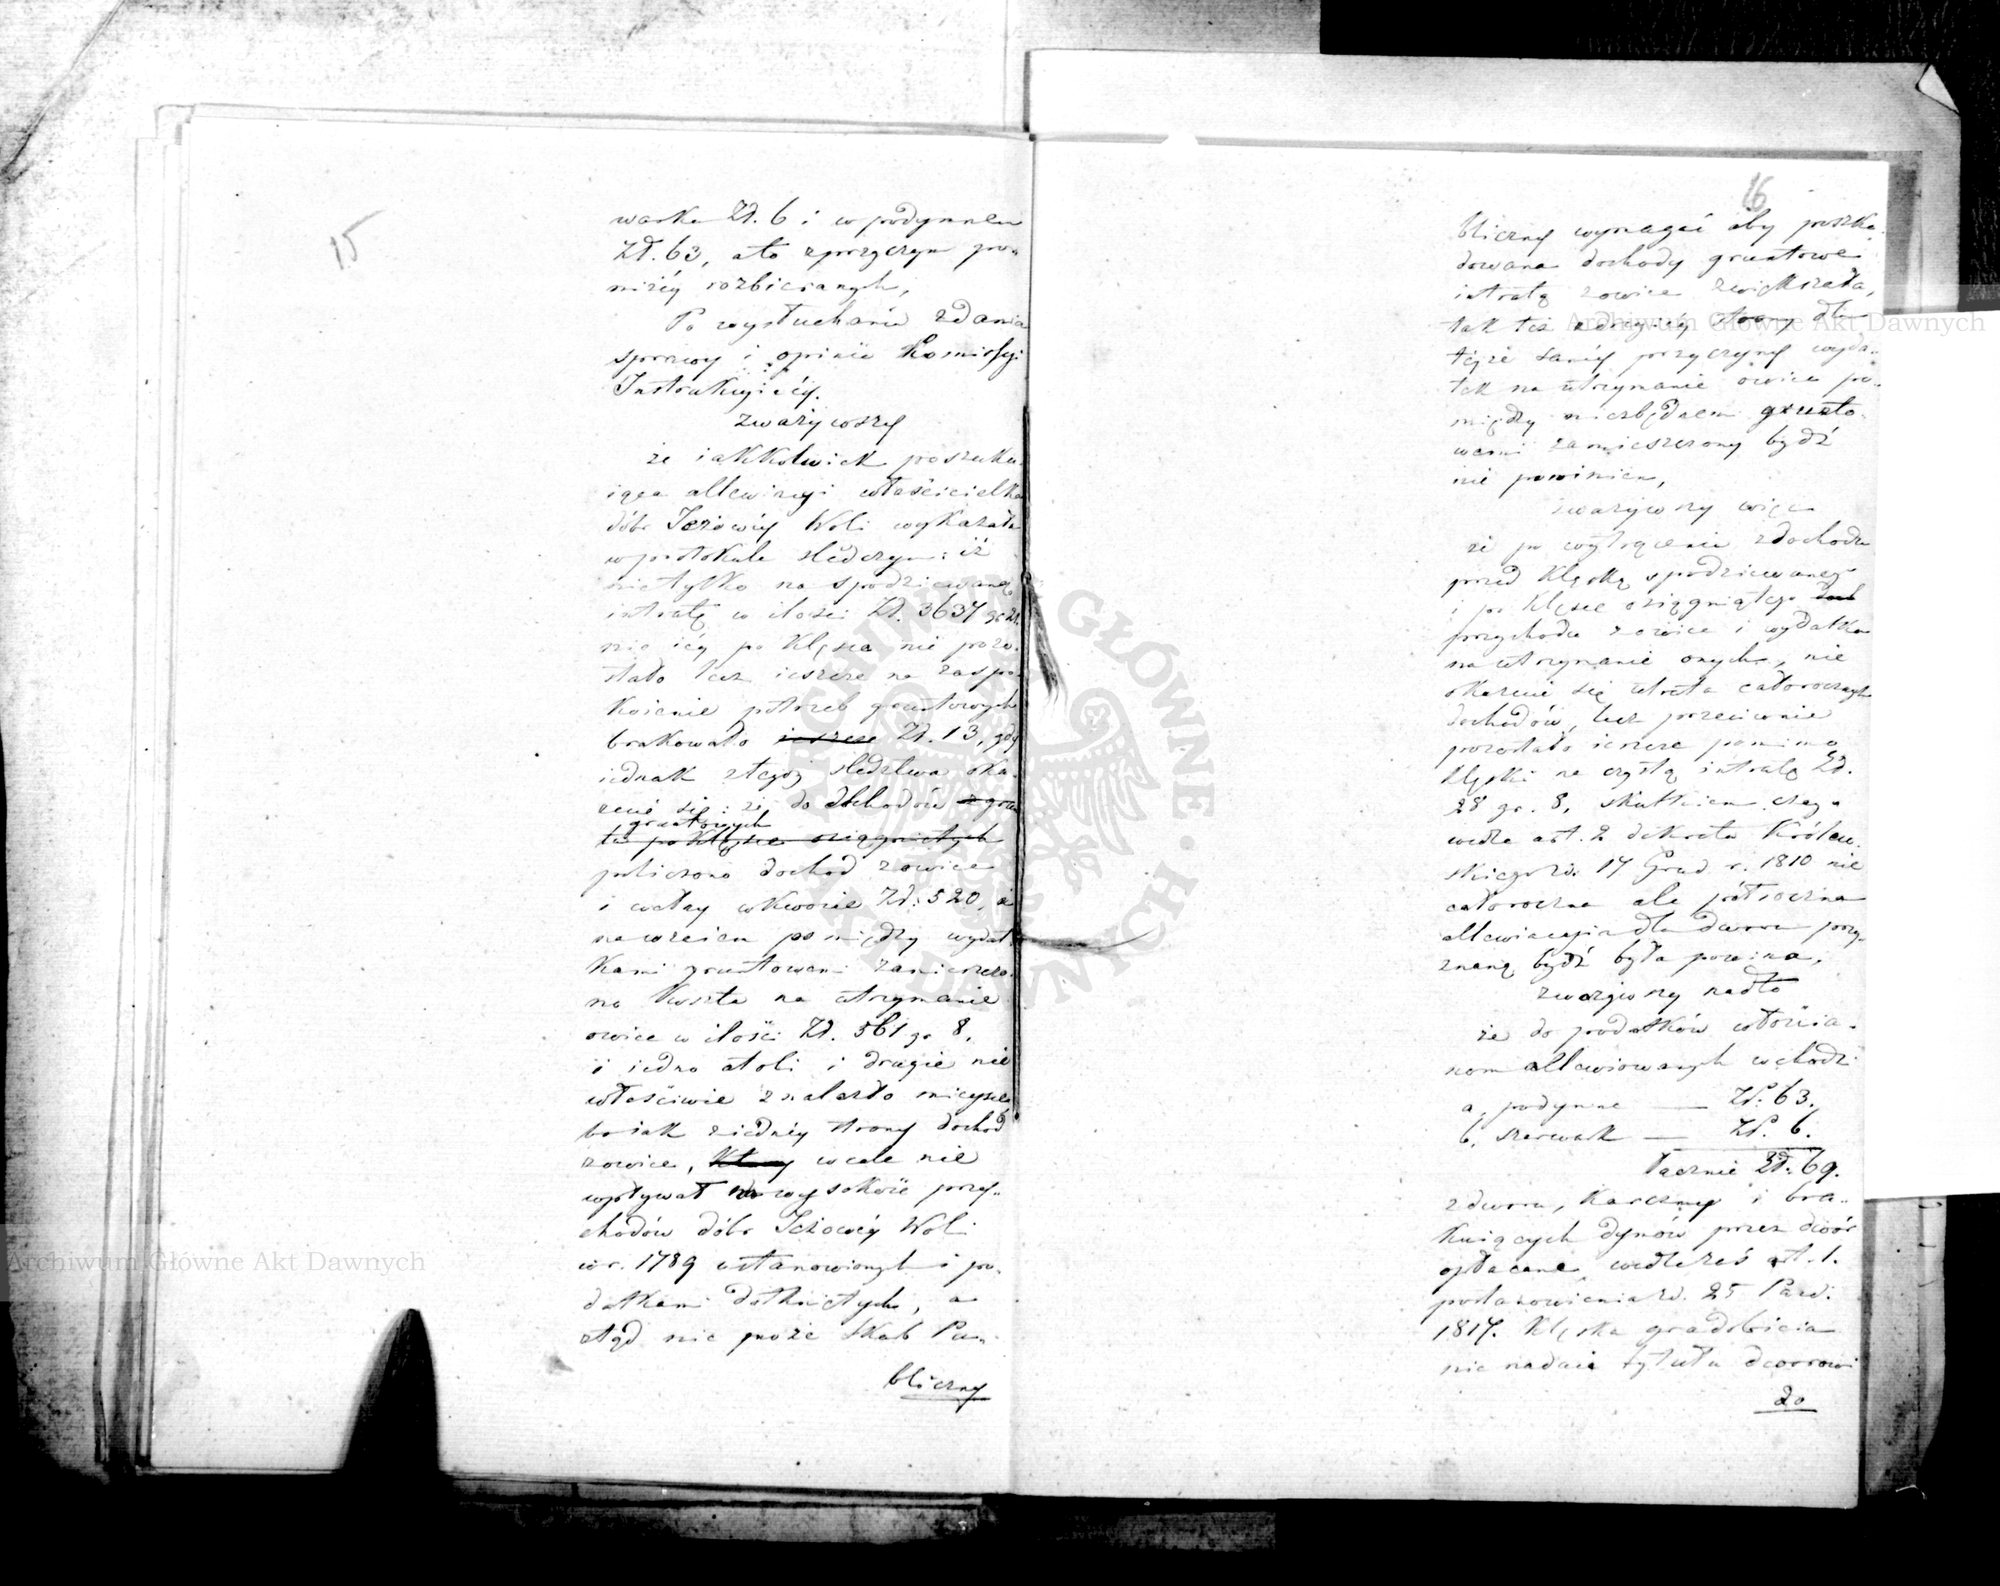 15
warku Zł. 6 i w podymnem
Zł. 63, a to z przyczyn po-
niżéy rozbieranych,
Po wysłuchaniu zdania
sprawy i opinii Kommissyi
Instrukcyinéy.
zważywszy
że iakkolwiek poszuku-
iąca allewiacyi właścicielka
dóbr Jeżowéy Woli wykazała
w protokule śledczym: iż
nietylko na spodziewaną
intratę w ilości Zł. 3637 gr 21.
nic iéy po klęsce nie pozo-
stało lecz ieszcze na zaspo-
koienie potrzeb gruntowych
brakowało ieszcze Zł. 13, gdy
iednak z tegoż śledztwa oka-
zuie się: że do dochodów z grun
gruntowych
tu po klęsce osiągniętych
policzono dochod z owiec
i wełny w kwocie Zł: 520, a
nawzaiem pomiędzy wydat-
kami gruntowemi zamieszczo-
no koszta na utrzymanie
owiec w ilości Zł. 561 gr 8,
iż iedno atoli i drugie nie
właściwie znalazło mieysce
bo iak z iednéy strony dochod
z owiec, który wcale nie
wpływał na wysokość przy-
chodów dóbr Jeżowéy Woli
w r. 1789 ustanowionych i po-
datkami dotkniętych, a
ztąd nie może Skarb Pu-
bliczny
16
bliczny wymagać aby poszko-
dowana dochody gruntowe
intratą z owiec zwiększała,
tak też z drugiéy strony dla
teyże saméy przyczyny wyda-
tek na utrzymanie owiec po-
między niezbędnemi grunto-
wemi zamieszczony bydź
nie powinien,
zważywszy więc
że po wytrąceniu z dochodu
przed klęską spodziewanego
i po klęsce osiągniętego doch
przychodu z owiec i wydatku
na utrzymanie onych, nie
okazuie się utrata całorocznych
dochodów, lecz przeciwnie
pozostało ieszcze pomimo
klęski na czystą intratę Zł.
28 gr. 8, skutkiem czego
wedle art. 2 dekretu Królew-
skiego z d. 17 Grud. r. 1810 nie
całoroczna ale półroczna
allewiacyia dla dworu przy-
znaną bydź była powinna,
zważywszy nadto
że do podatków włościa-
nom allewiowanych wchodzi
a, podymne — Zł. 63.
b, szarwark — Zł. 6.
łącznie Zł. 69.
z dworu, karczmy i bra-
kuiących dymów przez dwór
opłacane, wedle zaś art. 1.
postanowienia z d. 25 Paźd.
1817. klęska gradobicia
nie nadaie tytułu dworowi
do